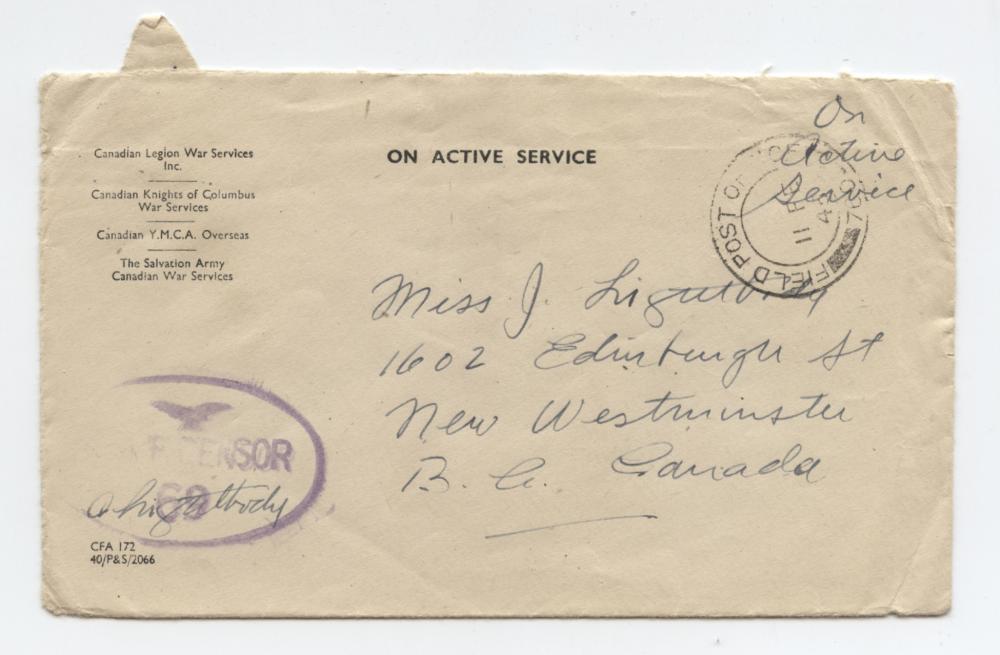 On
Active
Service
ON ACTIVE SERVICE
Canadian Legion War Services
Inc.
Canadian Knights of Columbus
War Services
Canadian Y.M.C.A. Overseas
The Salvation Army
Canadian War Services
FIELD POST OFFICE
11 FE
Miss J. Lightbody
1602 Edinburgh St
New Westminster
B. C. Canada
CENSOR
69
A Lightbody
CFA 172
40/P&S/2066